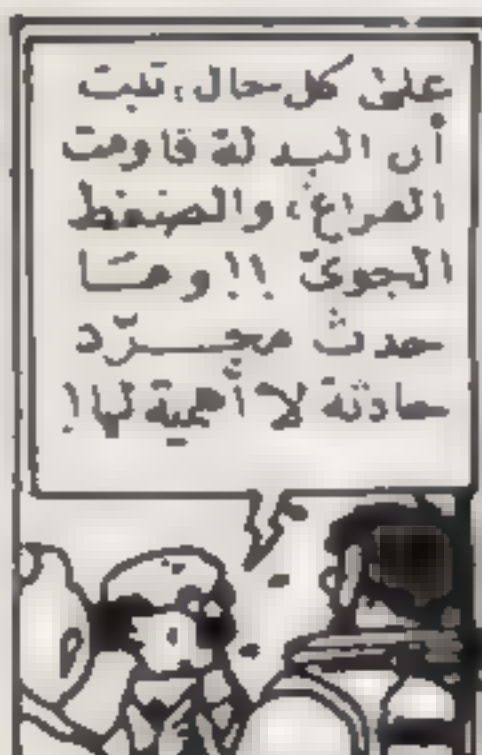 على كل حال، تبت
أن البدلة قاومت
الفراغ، والضغط
الجوىّ !! وما
حدث مجرّد
حادثة لا أهمية لها!